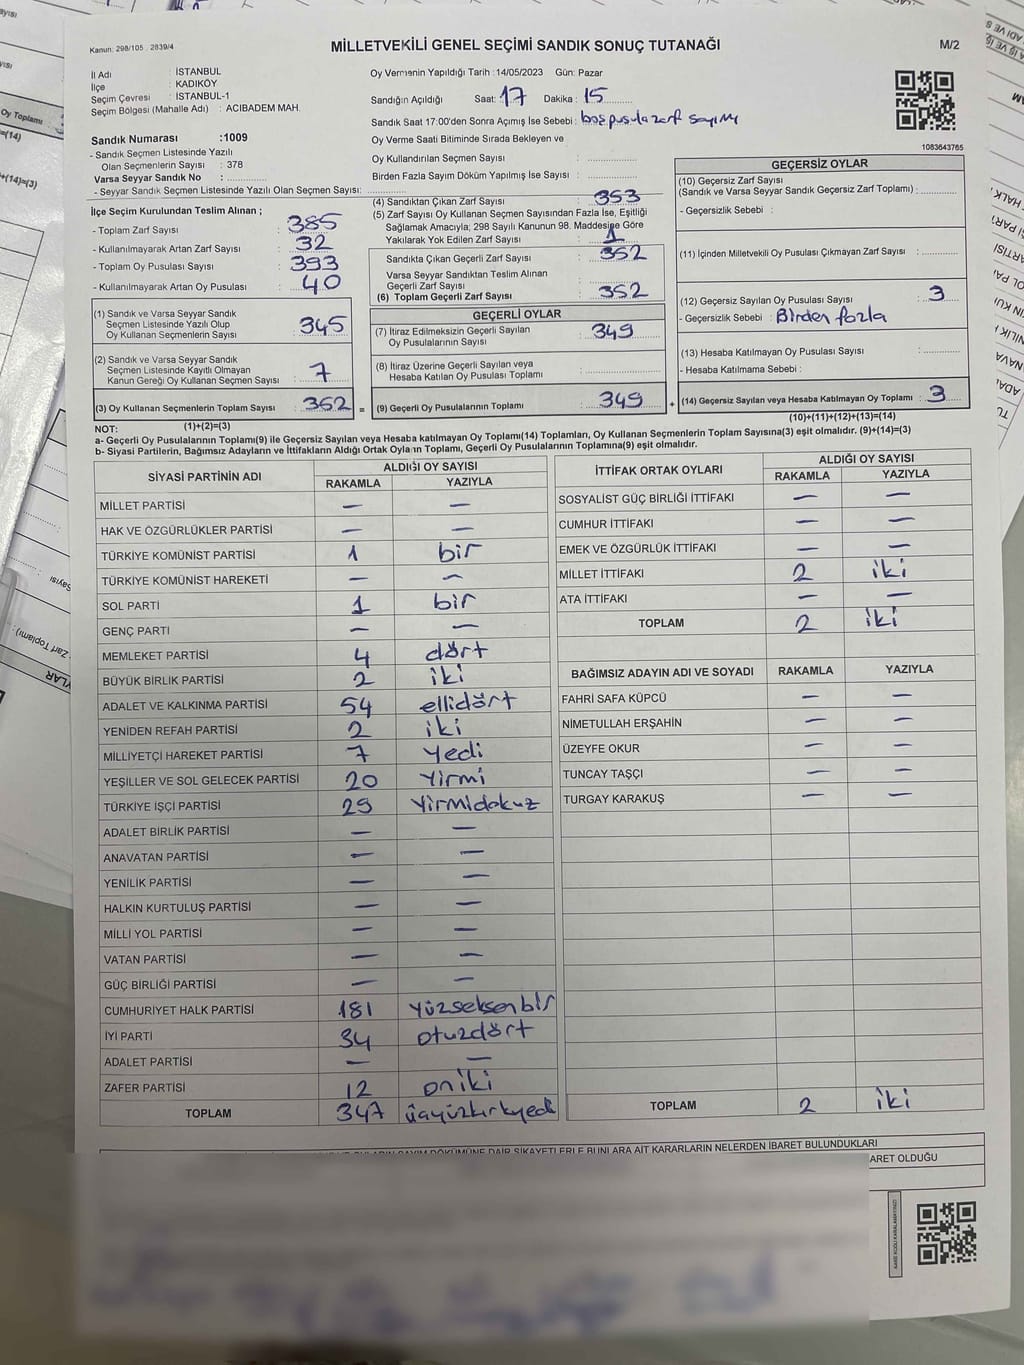 Kanun: 298/105 , 2839/4
MİLLETVEKİLİ GENEL SEÇİMİ SANDIK SONUÇ TUTANAĞI
M/2
İl Adı : İSTANBUL
İlçe : KADIKÖY
Seçim Çevresi : İSTANBUL-1
Seçim Bölgesi (Mahalle Adı) : ACIBADEM MAH.
Oy Vermenin Yapıldığı Tarih :14/05/2023 Gün: Pazar
Sandığın Açıldığı Saat: 17 Dakika : 15
Sandık Saat 17:00'den Sonra Açımış İse Sebebi : boş pusula zarf sayımı
Sandık Numarası :1009
- Sandık Seçmen Listesinde Yazılı
Olan Seçmenlerin Sayısı : 378
Varsa Seyyar Sandık No :
- Seyyar Sandık Seçmen Listesinde Yazılı Olan Seçmen Sayısı:
Oy Verme Saati Bitiminde Sırada Bekleyen ve
Oy Kullandırılan Seçmen Sayısı :
Birden Fazla Sayım Döküm Yapılmış İse Sayısı :
1083643765
İlçe Seçim Kurulundan Teslim Alınan ;
- Toplam Zarf Sayısı : 385
- Kullanılmayarak Artan Zarf Sayısı : 32
- Toplam Oy Pusulası Sayısı : 393
- Kullanılmayarak Artan Oy Pusulası : 40
(1) Sandık ve Varsa Seyyar Sandık
Seçmen Listesinde Yazılı Olup
Oy Kullanan Seçmenlerin Sayısı : 345
(2) Sandık ve Varsa Seyyar Sandık
Seçmen Listesinde Kayıtlı Olmayan
Kanun Gereği Oy Kullanan Seçmen Sayısı : 7
(3) Oy Kullanan Seçmenlerin Toplam Sayısı : 352 =
(1)+(2)=(3)
(4) Sandıktan Çıkan Zarf Sayısı : 353
(5) Zarf Sayısı Oy Kullanan Seçmen Sayısından Fazla İse, Eşitliği
Sağlamak Amacıyla; 298 Sayılı Kanunun 98. Maddesine Göre
Yakılarak Yok Edilen Zarf Sayısı : 1
Sandıkta Çıkan Geçerli Zarf Sayısı : 352
Varsa Seyyar Sandıktan Teslim Alınan
Geçerli Zarf Sayısı :
(6) Toplam Geçerli Zarf Sayısı : 352
GEÇERLİ OYLAR
(7) İtiraz Edilmeksizin Geçerli Sayılan
Oy Pusulalarının Sayısı : 349
(8) İtiraz Üzerine Geçerli Sayılan veya
Hesaba Katılan Oy Pusulası Toplamı :
(9) Geçerli Oy Pusulalarının Toplamı : 349 +
GEÇERSİZ OYLAR
(10) Geçersiz Zarf Sayısı
(Sandık ve Varsa Seyyar Sandık Geçersiz Zarf Toplamı) :
- Geçersizlik Sebebi :
(11) İçinden Milletvekili Oy Pusulası Çıkmayan Zarf Sayısı :
(12) Geçersiz Sayılan Oy Pusulası Sayısı : 3
- Geçersizlik Sebebi : Birden fazla
(13) Hesaba Katılmayan Oy Pusulası Sayısı :
- Hesaba Katılmama Sebebi :
(14) Geçersiz Sayılan veya Hesaba Katılmayan Oy Toplamı : 3
(10)+(11)+(12)+(13)=(14)
NOT:
a- Geçerli Oy Pusulalarının Toplamı(9) ile Geçersiz Sayılan veya Hesaba katılmayan Oy Toplamı(14) Toplamları, Oy Kullanan Seçmenlerin Toplam Sayısına(3) eşit olmalıdır. (9)+(14)=(3)
b- Siyasi Partilerin, Bağımsız Adayların ve İttifakların Aldığı Ortak Oyların Toplamı, Geçerli Oy Pusulalarının Toplamına(9) eşit olmalıdır.
SİYASİ PARTİNİN ADI ALDIĞI OY SAYISI
RAKAMLA YAZIYLA
MİLLET PARTİSİ — —
HAK VE ÖZGÜRLÜKLER PARTİSİ — —
TÜRKİYE KOMÜNİST PARTİSİ 1 bir
TÜRKİYE KOMÜNİST HAREKETİ — —
SOL PARTİ 1 bir
GENÇ PARTİ — —
MEMLEKET PARTİSİ 4 dört
BÜYÜK BİRLİK PARTİSİ 2 iki
ADALET VE KALKINMA PARTİSİ 54 ellidört
YENİDEN REFAH PARTİSİ 2 iki
MİLLİYETÇİ HAREKET PARTİSİ 7 yedi
YEŞİLLER VE SOL GELECEK PARTİSİ 20 yirmi
TÜRKİYE İŞÇİ PARTİSİ 29 yirmidokuz
ADALET BİRLİK PARTİSİ — —
ANAVATAN PARTİSİ — —
YENİLİK PARTİSİ — —
HALKIN KURTULUŞ PARTİSİ — —
MİLLİ YOL PARTİSİ — —
VATAN PARTİSİ — —
GÜÇ BİRLİĞİ PARTİSİ — —
CUMHURİYET HALK PARTİSİ 181 yüzseksenbir
İYİ PARTİ 34 otuzdört
ADALET PARTİSİ — —
ZAFER PARTİSİ 12 oniki
TOPLAM 347 üçyüzkırkyedi
İTTİFAK ORTAK OYLARI ALDIĞI OY SAYISI
RAKAMLA YAZIYLA
SOSYALİST GÜÇ BİRLİĞİ İTTİFAKI — —
CUMHUR İTTİFAKI — —
EMEK VE ÖZGÜRLÜK İTTİFAKI — —
MİLLET İTTİFAKI 2 iki
ATA İTTİFAKI — —
TOPLAM 2 iki
BAĞIMSIZ ADAYIN ADI VE SOYADI RAKAMLA YAZIYLA
FAHRİ SAFA KÜPCÜ — —
NİMETULLAH ERŞAHİN — —
ÜZEYFE OKUR — —
TUNCAY TAŞÇI — —
TURGAY KARAKUŞ — —
TOPLAM 2 iki
DÖKÜMÜNE DAİR ŞİKAYETLERLE BUNLARA AİT KARARLARIN NELERDEN İBARET BULUNDUKLARI
ARET OLDUĞU